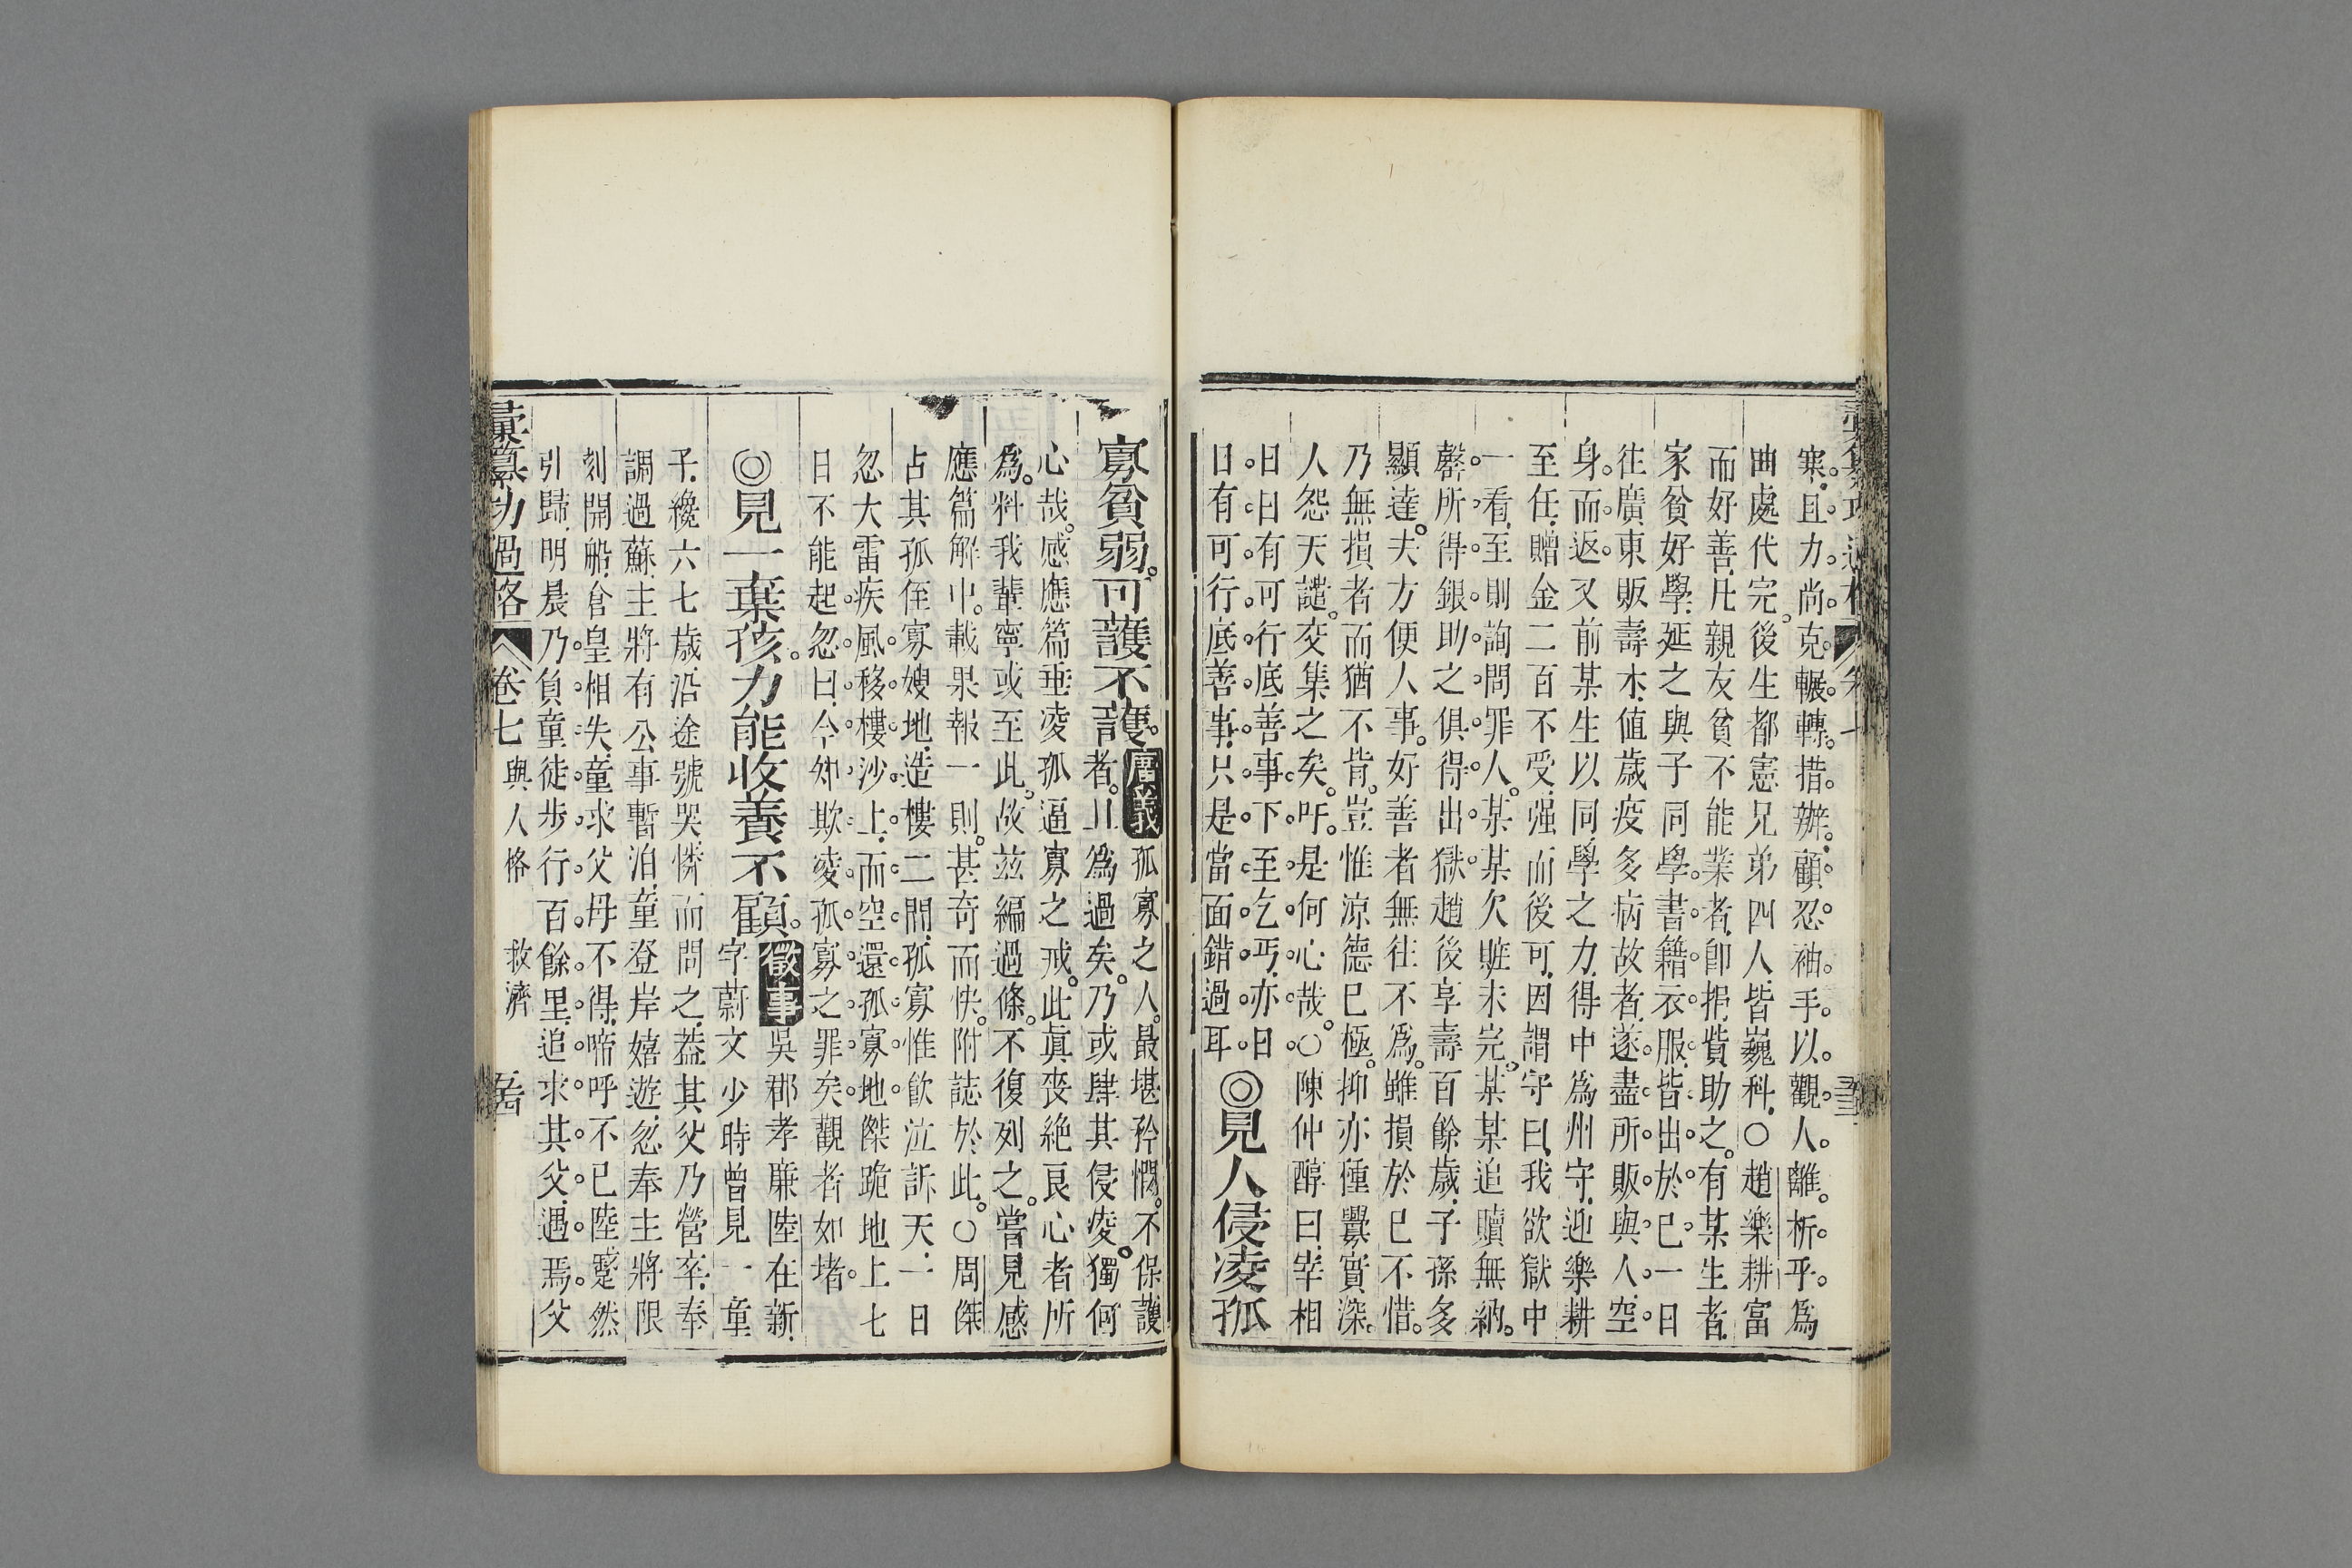 寒。且力尚克輾轉措辦。顧忍袖手以觀人離析乎。爲
曲處代完。後生都憲兄弟四人皆巍科。○趙樂耕富
而好善。凡親友貧不能業者。卽捐貲助之。有某生者。
家貧好學。延之與子同學。書籍衣服皆出於己。一日
往廣東販壽木。值歲疫多病故者。遂盡所販與人。空
身而返。又前某生以同學之力。得中爲州守。迎樂耕
至任。贈金二百不受。强而後可。因謂守曰。我欲獄中
一看。至則詢問罪人。某某欠贓未完。某某追贖無納。
罄所得銀助之。俱得出獄。趙後享壽百餘歲。子孫多
顯達。夫方便人事。好善者無往不爲。雖損於己不惜。
乃無損者而猶不肯。豈惟涼德已極。抑亦種釁實深。
人怨天譴。交集之矣。吁。是何心哉。○陳仲醇曰。宰相
日日有可行底善事。下至乞丐。亦日
日有可行底善事。只是當面錯過耳。
◎見人侵凌孤
寡貧弱。可護不護者。
廣義
孤寡之人。最堪矜憫。不保護
爲過矣。乃或肆其侵凌。獨何
心哉。感應篇垂凌孤逼寡之戒。此眞喪絕良心者所
爲。料我輩寧或至此。故兹編過條。不復列之。嘗見感
應篇解中。載果報一則。甚奇而快。附誌於此。○周傑
占其孤侄寡嫂地。造樓二間。孤寡惟飮泣訴天。一日
忽大雷疾風。移樓沙上。而空還孤寡地。傑跪地上七
日不能起。忽曰。今知欺凌孤寡之罪矣。觀者如堵。
◎見一棄孩。力能收養不顧。
徵事
吳郡孝廉陸在新。
字蔚文。少時曾見一童
子。纔六七歲。沿途號哭。憐而問之。葢其父乃營卒。奉
調過蘇。主將有公事暫泊。童登岸嬉遊。忽奉主將限
刻開船。倉皇相失。童求父母不得。啼呼不已。陸蹙然
引歸。明晨乃負童徒步行百餘里。追求其父。遇焉。父
彙纂功過格
卷七
與人格
救濟